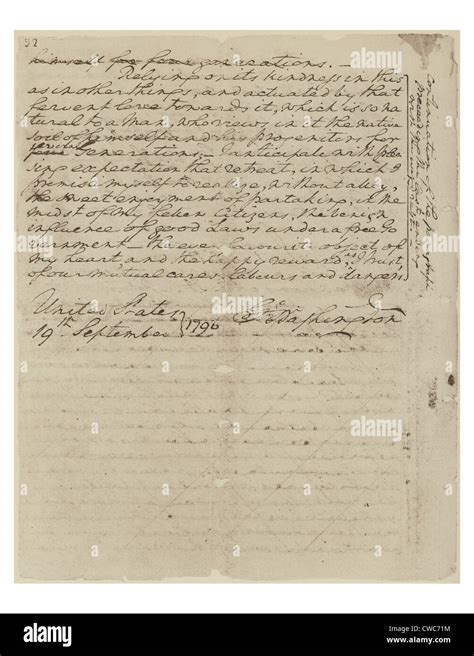 32
himself for four generations. —
Relying on its kindness in this
as in other things, and actuated by that
fervent love towards it, which is so na
tural to a Man, who views in it the native
soil of himself and his progenitors for
several
four Generations; I anticipate with plea
sing expectation that retreat, in which I
promise myself to realize, without alloy,
the sweet enjoyment of partaking, in the
midst of my fellow Citizens, the benign
influence of good Laws under a free Go
vernment, — the ever favourite object of
my heart, and the happy reward, as I trust,
of our mutual cares, labours and dangers.
United States
19th September 1796
G Washington
alamy
Image ID: CWC71M
www.alamy.com